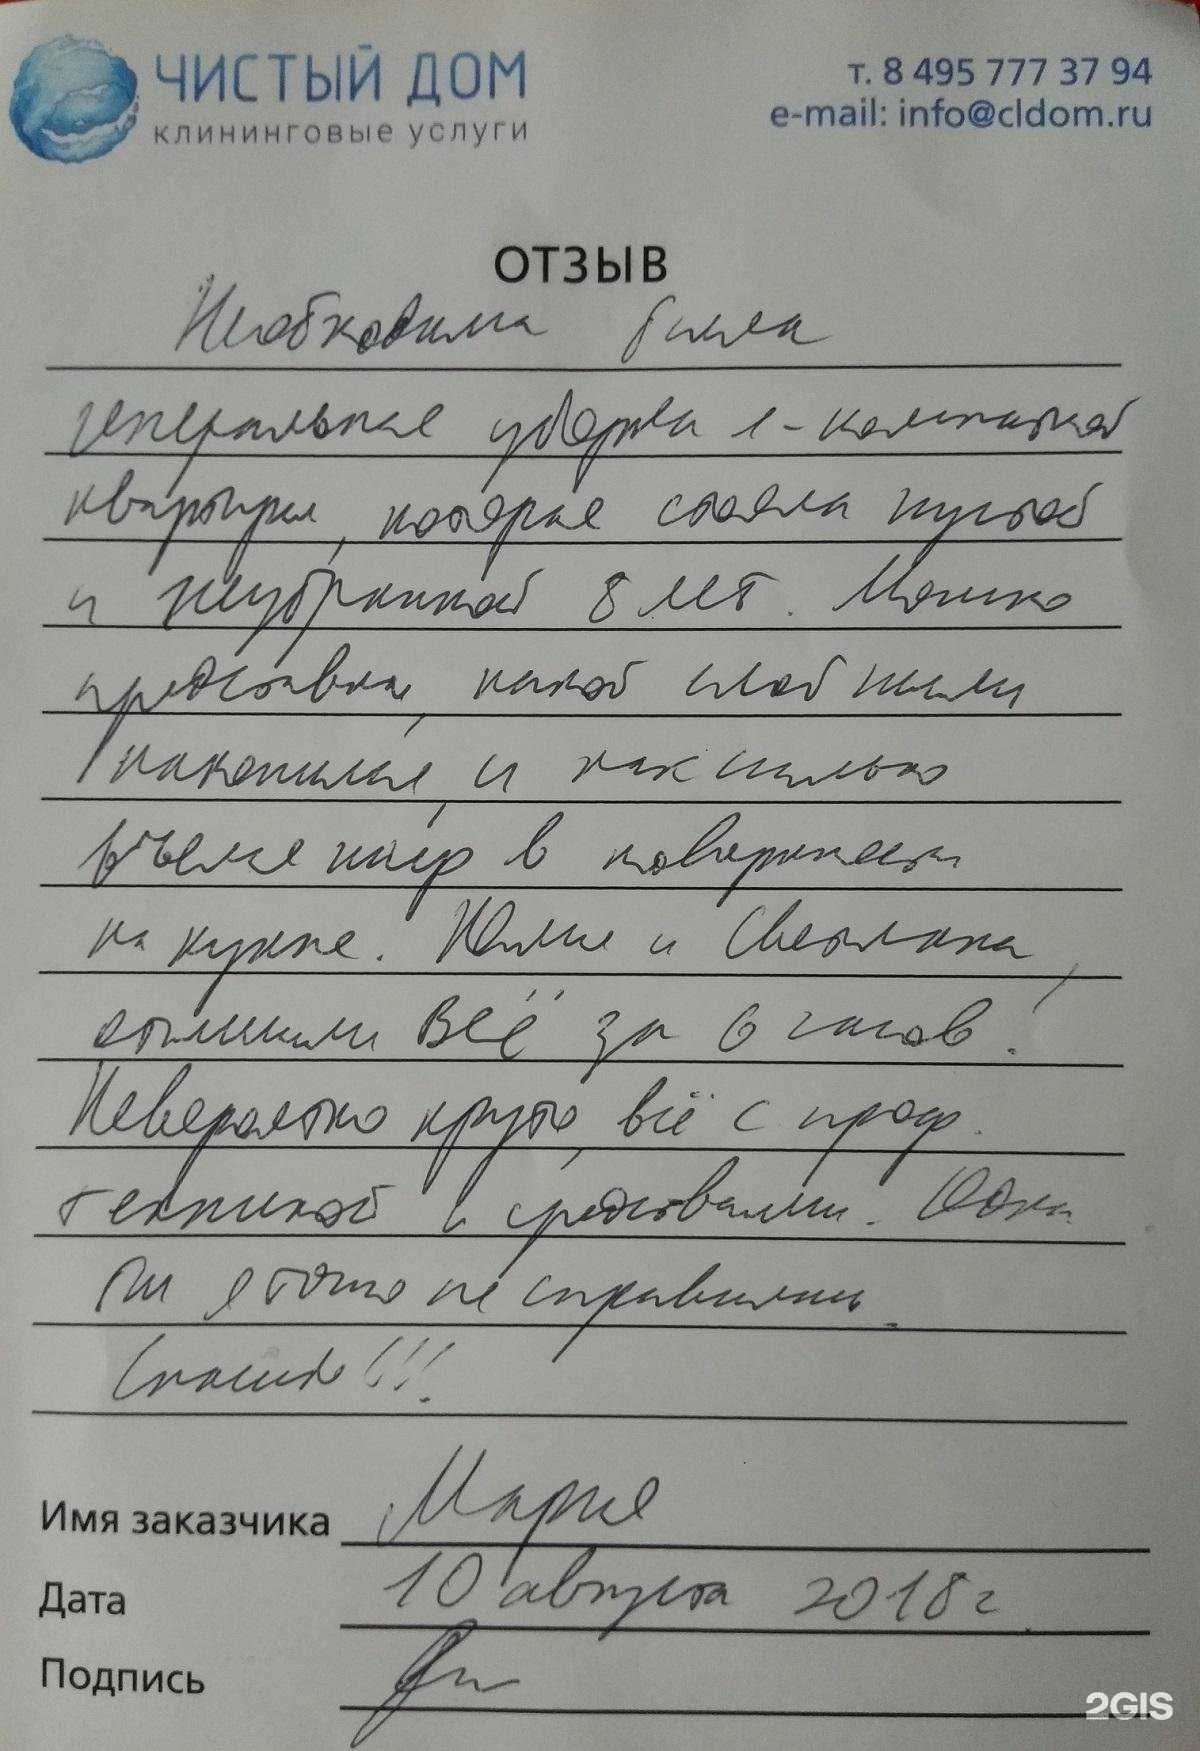 ЧИСТЫЙ ДОМ
клининговые услуги
т. 8 495 777 37 94
e-mail: info@cldom.ru
ОТЗЫВ
Необходима была
генеральная уборка 1-комнатной
квартиры, которая стояла пустой
и неубранной 8 лет. Можно
представить, какой слой пыли
накопился, и насколько
въелся жир в поверхности
на кухне. Юлия и Светлана,
отмыли ВСЁ за 6 часов!
Невероятно круто, всё с проф.
техникой и средствами. Одна
бы я точно не справилась.
Спасибо!!!
Имя заказчика Мария
Дата 10 августа 2018 г.
Подпись
2GIS